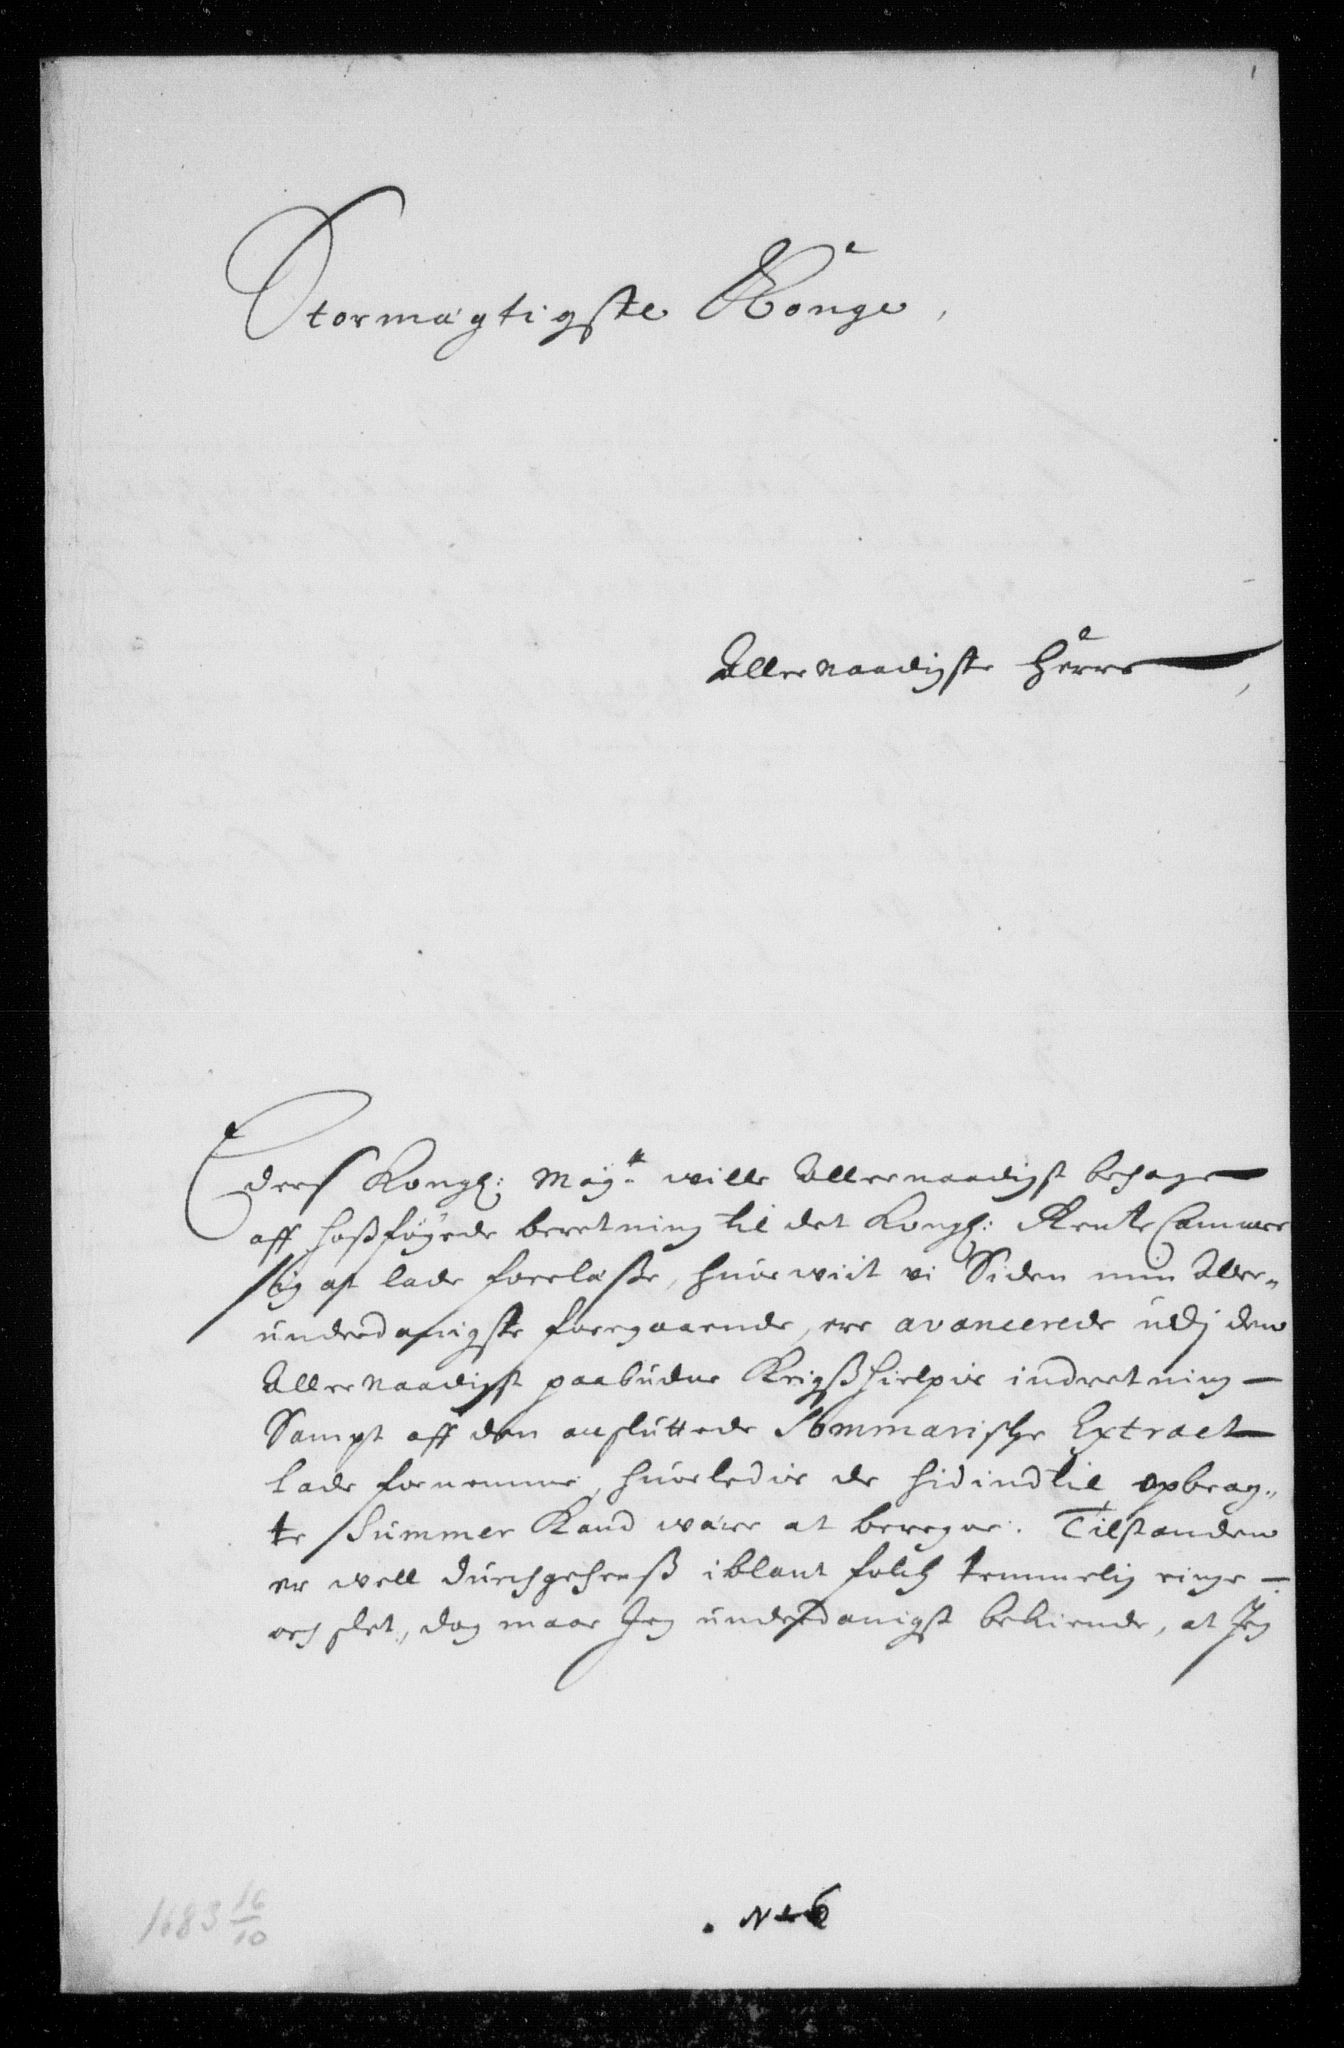 1
Stormægtigste Konge,
Allernaadigste Herre,
Ederß Kongl: Mayᵗᵗ wille Allernaadigst behage
aff hoßføyede beretning til det Kongl: Rente Cammer
sig at lade forelæße, huor wiit vi Siden min Aller„
underdanigste foregaaende, ere avancerede udj den
Allernaadigst paabudne Krigßhielps indretning –
Sampt aff den ansluttede Summarische Extract
lade fornemme, huorledis de hidindtil opbrag„
te Summer Kand være at beregne. Tilstanden
er well durchgehenß iblant folch temmelig ringe –
och slet, dog maae Jeg underdanigst bekiende, at Jeg
N 6
1683 16/10